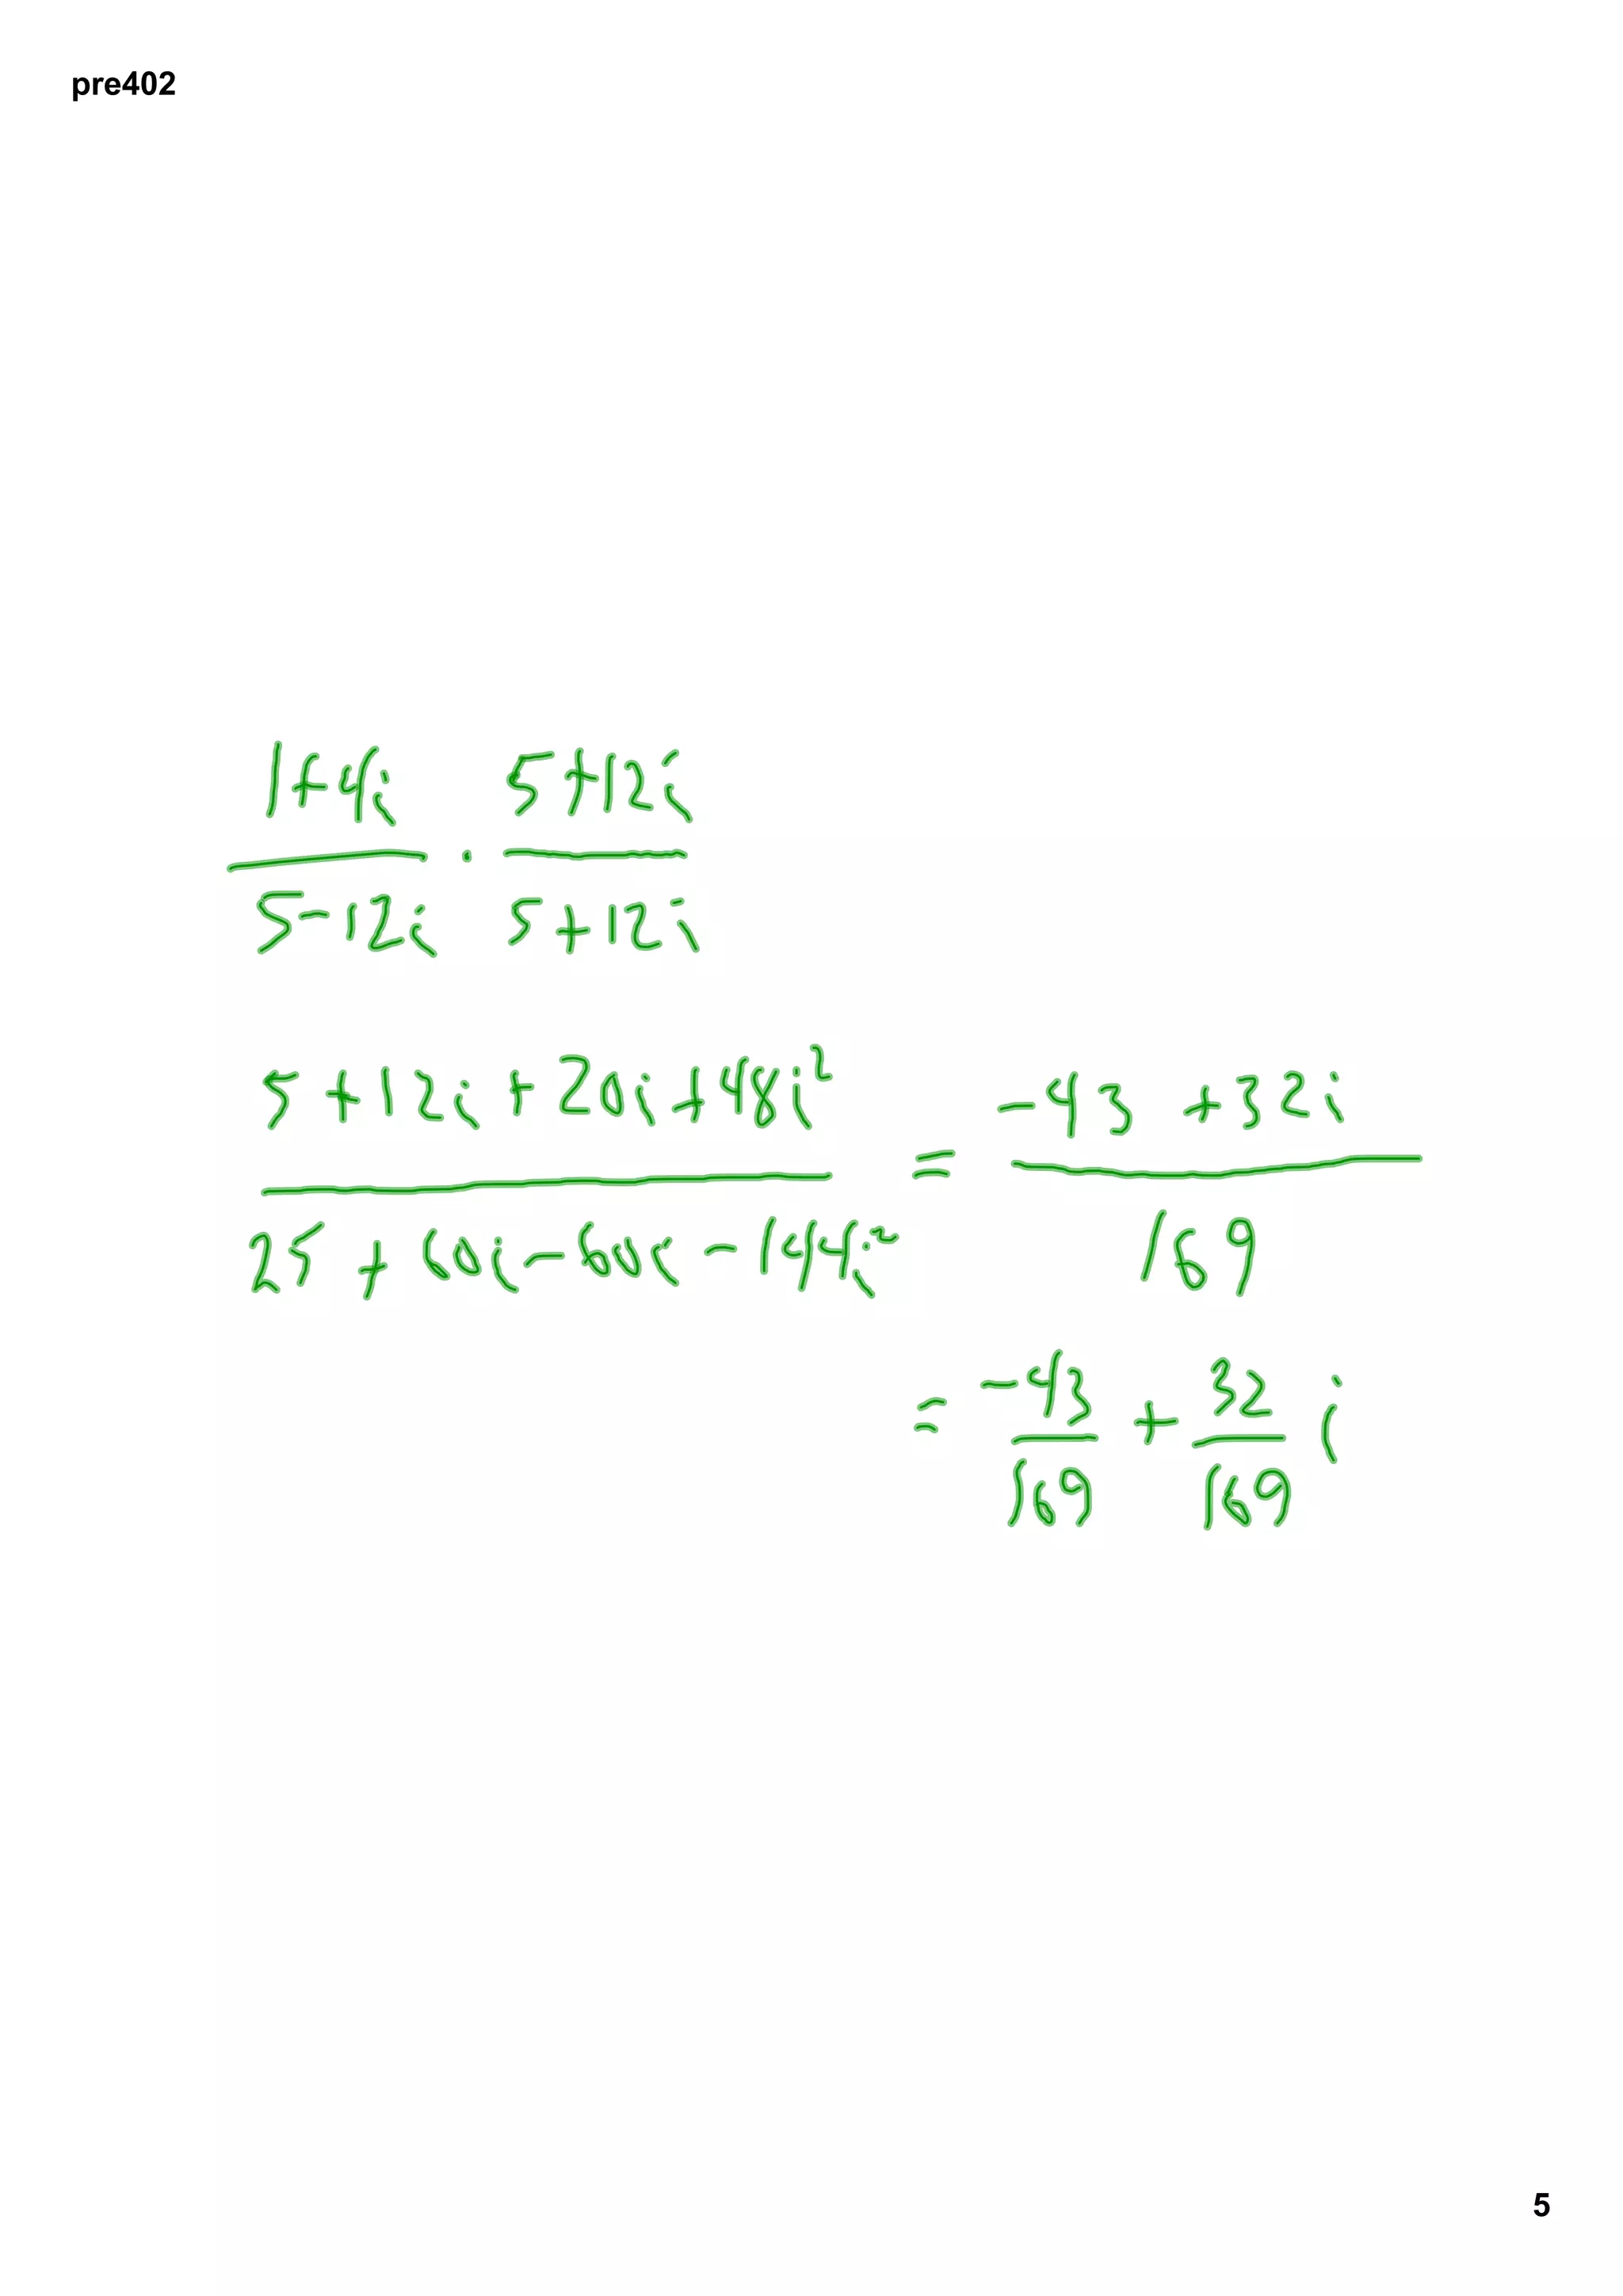 pre402
1+4i/5-12i · 5+12i/5+12i
5+12i+20i+48i²/25+60i-60i-144i² = -43+32i/169
= -43/169 + 32/169 i
5